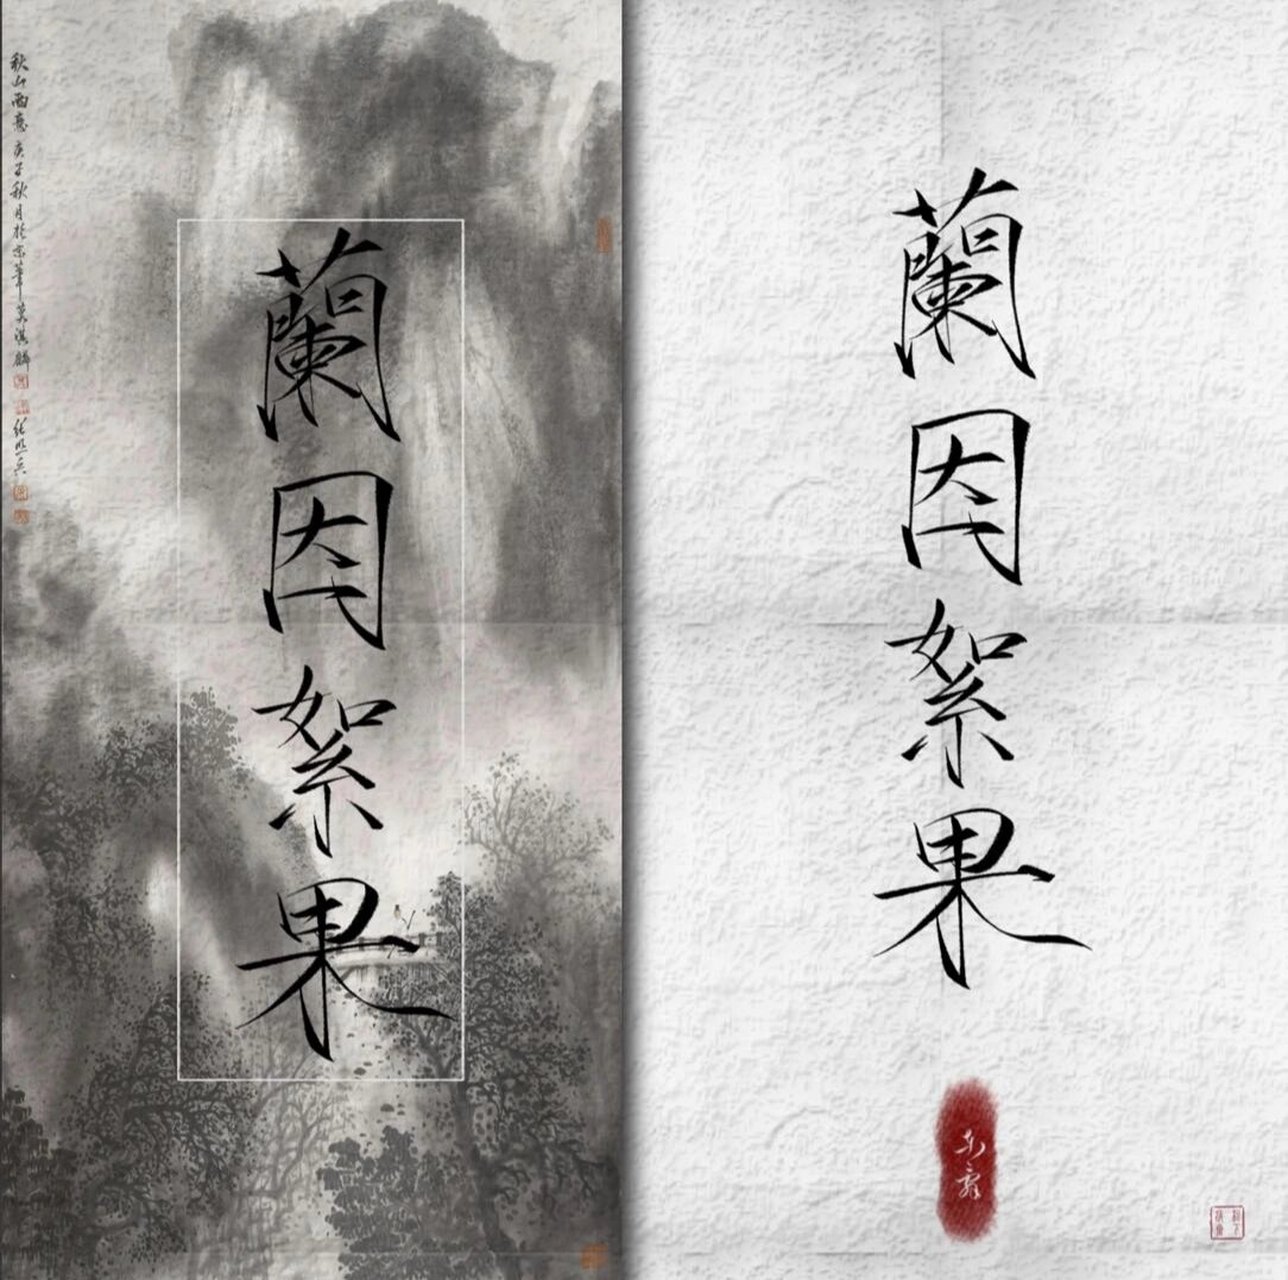 秋山雨意 庚子秋月於京華 莫淇麟
蘭因絮果
蘭因絮果